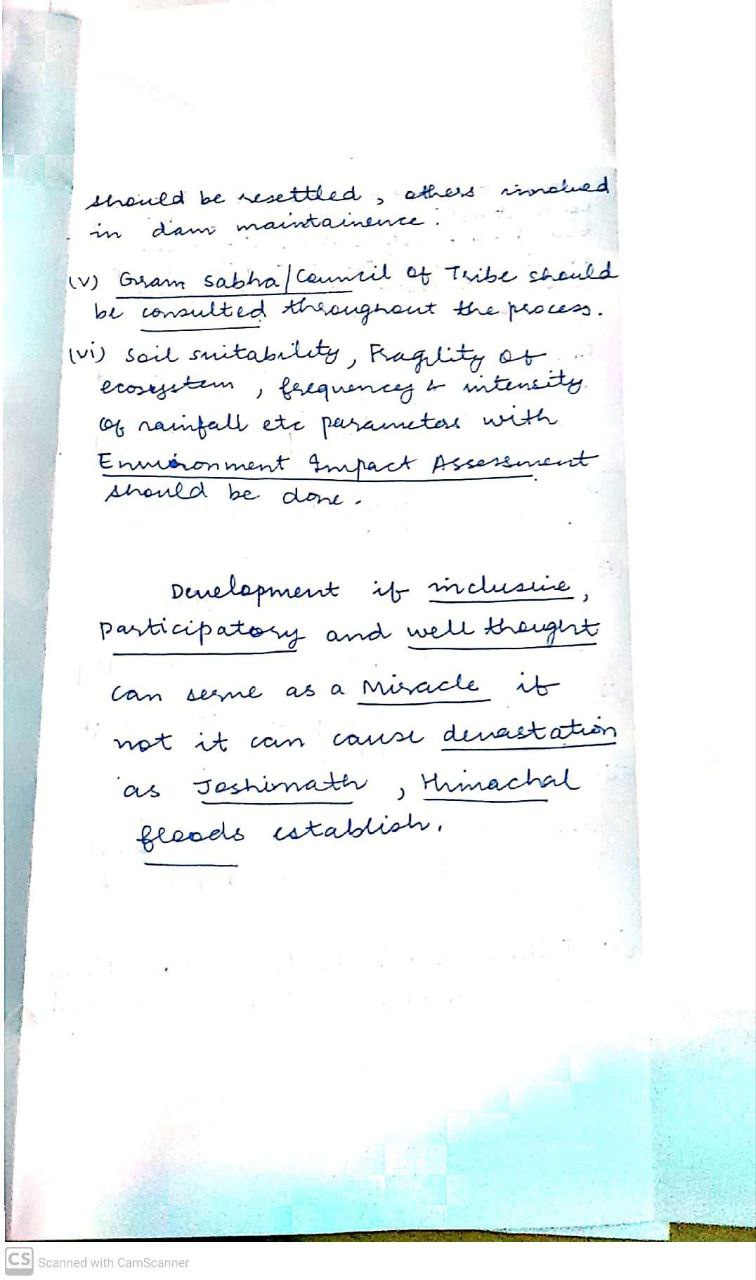 should be resettled, others involved
in dam maintainence.
(v) Gram Sabha/Council of Tribe should
be consulted throughout the process.
(vi) Soil suitability, Fragility of
ecosystem, frequency & intensity
of rainfall etc parameters with
Environment Impact Assessment
should be done.
Development if inclusive,
participatory and well thought
can serve as a Miracle if
not it can cause devastation
as Joshimath, Himachal
floods establish.
CS Scanned with CamScanner